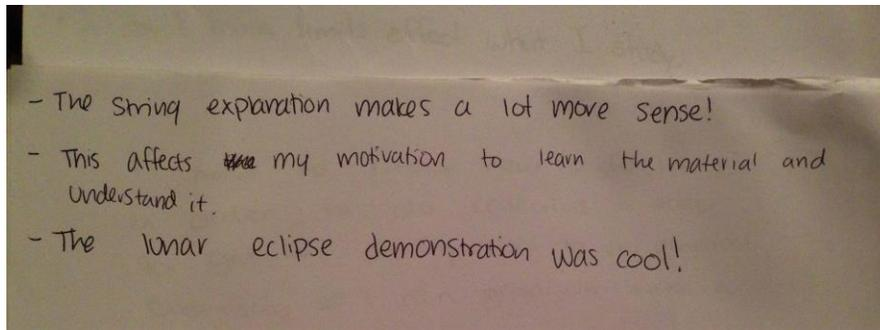 - The string explanation makes a lot more sense!
- This affects my motivation to learn the material and
understand it.
- The lunar eclipse demonstration was cool!